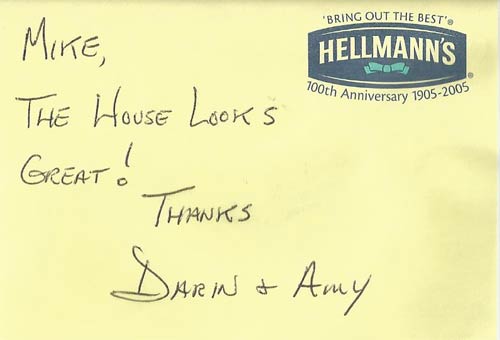 'BRING OUT THE BEST'®
HELLMANN'S®
100th Anniversary 1905-2005
MIKE,
THE HOUSE LOOKS
GREAT!
THANKS
DARIN & AMY